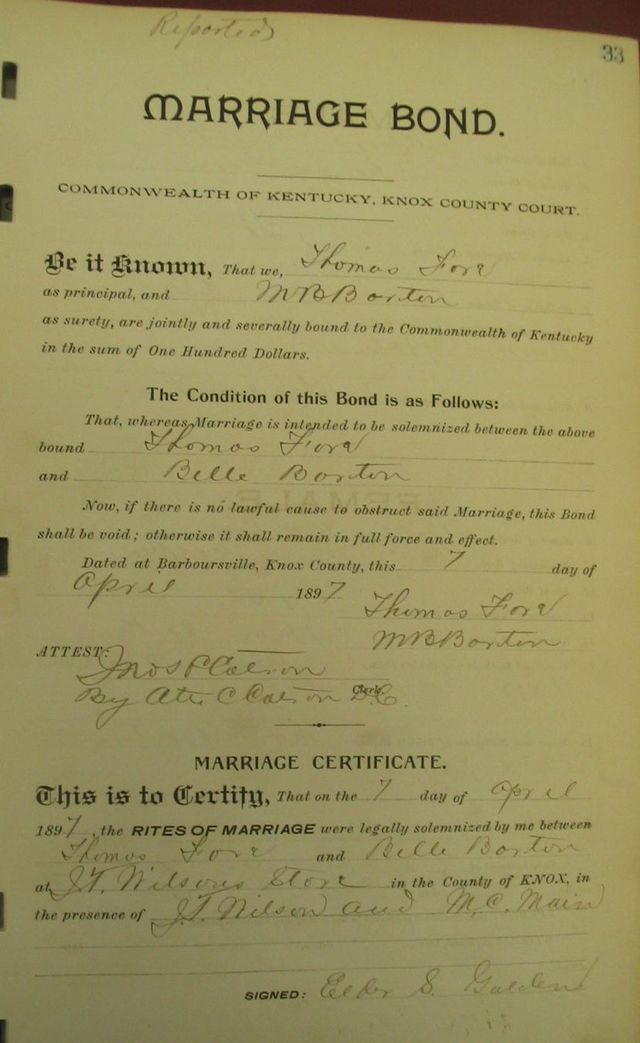 Reported
33
MARRIAGE BOND.
COMMONWEALTH OF KENTUCKY, KNOX COUNTY COURT.
Be it Known, That we, Thomas Fore
as principal, and M B Barton
as surety, are jointly and severally bound to the Commonwealth of Kentucky
in the sum of One Hundred Dollars.
The Condition of this Bond is as Follows:
That, whereas Marriage is intended to be solemnized between the above
bound Thomas Fore
and Belle Barton
Now, if there is no lawful cause to obstruct said Marriage, this Bond
shall be void; otherwise it shall remain in full force and effect.
Dated at Barboursville, Knox County, this 7 day of
April 1897
Thomas Fore
M B Barton
ATTEST:
By C Clerk. D.C.
MARRIAGE CERTIFICATE.
This is to Certify, That on the 7 day of April
1897, the RITES OF MARRIAGE were legally solemnized by me between
Thomas Fore and Belle Barton
at J.T. Wilsons Store in the County of KNOX, in
the presence of J.T. Wilson and M.C. Main
SIGNED: Elder S. Golden